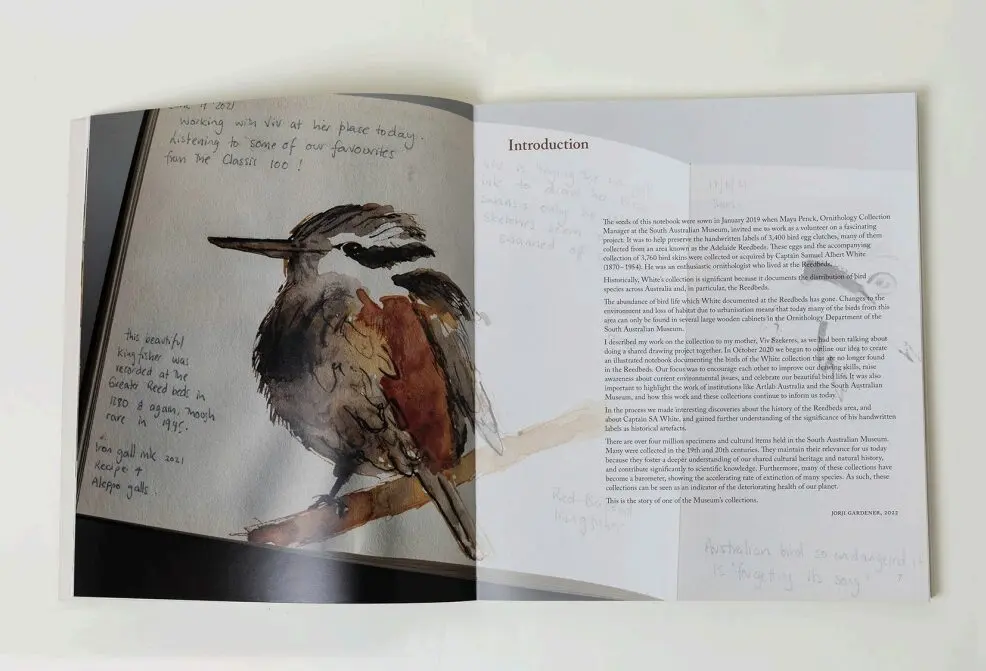 June 17 '2021
Working with Viv at her place today.
Listening to some of our favourites
from The Classic 100 !
this beautiful
kingfisher was
recorded at the
Greater Reed beds in
1880 & again, though
rare in 1945.
Iron gall ink 2021
Recipe 4
Aleppo galls.
Introduction
The seeds of this notebook were sown in January 2019 when Maya Penck, Ornithology Collection
Manager at the South Australian Museum, invited me to work as a volunteer on a fascinating
project. It was to help preserve the handwritten labels of 3,400 bird egg clutches, many of them
collected from an area known as the Adelaide Reedbeds. These eggs and the accompanying
collection of 3,760 bird skins were collected or acquired by Captain Samuel Albert White
(1870–1954). He was an enthusiastic ornithologist who lived at the Reedbeds.
Historically, White's collection is significant because it documents the distribution of bird
species across Australia and, in particular, the Reedbeds.
The abundance of bird life which White documented at the Reedbeds has gone. Changes to the
environment and loss of habitat due to urbanisation means that today many of the birds from this
area can only be found in several large wooden cabinets in the Ornithology Department of the
South Australian Museum.
I described my work on the collection to my mother, Viv Szekeres, as we had been talking about
doing a shared drawing project together. In October 2020 we began to outline our idea to create
an illustrated notebook documenting the birds of the White collection that are no longer found
in the Reedbeds. Our focus was to encourage each other to improve our drawing skills, raise
awareness about current environmental issues, and celebrate our beautiful bird life. It was also
important to highlight the work of institutions like Artlab Australia and the South Australian
Museum, and how this work and these collections continue to inform us today.
In the process we made interesting discoveries about the history of the Reedbeds area, and
about Captain SA White, and gained further understanding of the significance of his handwritten
labels as historical artefacts.
There are over four million specimens and cultural items held in the South Australian Museum.
Many were collected in the 19th and 20th centuries. They maintain their relevance for us today
because they foster a deeper understanding of our shared cultural heritage and natural history,
and contribute significantly to scientific knowledge. Furthermore, many of these collections have
become a barometer, showing the accelerating rate of extinction of many species. As such, these
collections can be seen as an indicator of the deteriorating health of our planet.
This is the story of one of the Museum's collections.
JORJI GARDENER, 2022
Red-Backed
Kingfisher
Australian bird so endangered it
is 'forgetting its song'
7